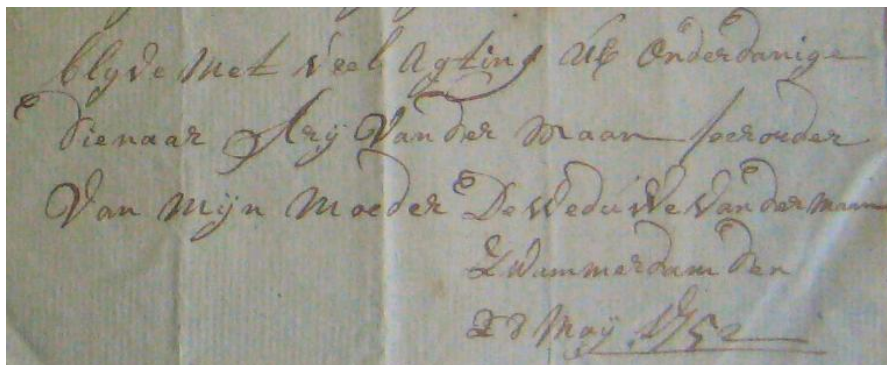 blyve Met Veel Agting UE Onderdanige
dienaar Arij Van der Maan per order
Van Mijn Moeder De Weduwe Van der Maan
Zwammerdam den
28 Maÿ 1752